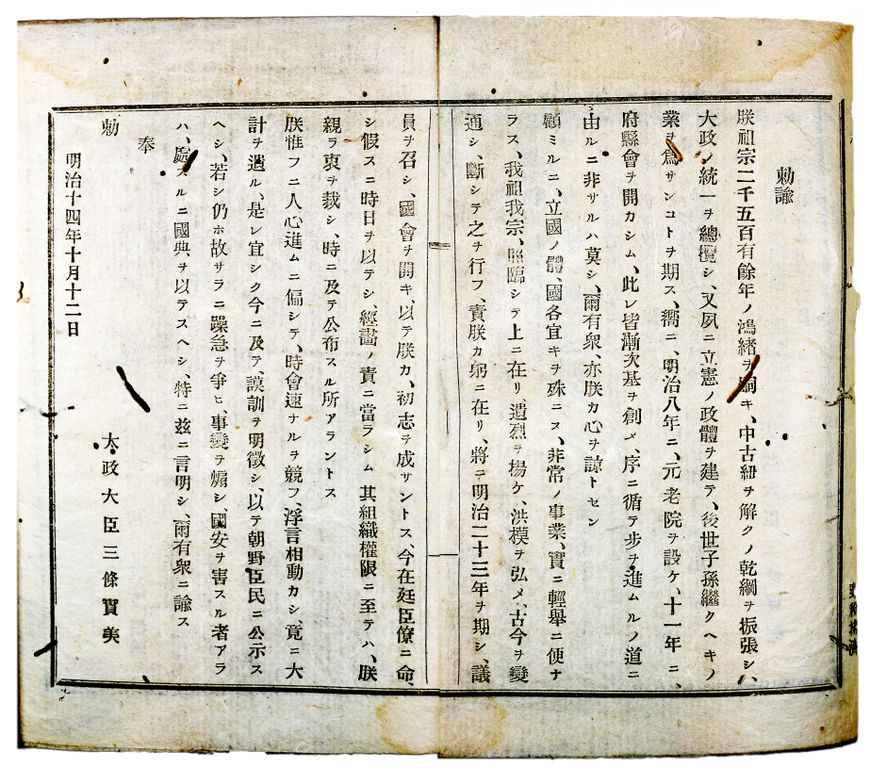 勅諭
朕祖宗二千五百有餘年ノ鴻緒ヲ嗣キ、中古紐ヲ解クノ乾綱ヲ振張シ、
大政ノ統一ヲ總攬シ、又夙ニ立憲ノ政體ヲ建テ、後世子孫繼クヘキノ
業ヲ爲サンコトヲ期ス、嚮ニ、明治八年ニ、元老院ヲ設ケ、十一年ニ、
府縣會ヲ開カシム、此レ皆漸次基ヲ創メ、序ニ循テ步ヲ進ムルノ道ニ
由ルニ非サルハ莫シ、爾有衆、亦朕カ心ヲ諒トセン
顧ミルニ、立國ノ體、國各宜キヲ殊ニス、非常ノ事業、實ニ輕舉ニ便ナ
ラス、我祖我宗、照臨シテ上ニ在リ、遺烈ヲ揚ケ、洪模ヲ弘メ、古今ヲ變
通シ、斷シテ之ヲ行フ、責朕カ躬ニ在リ、將ニ明治二十三年ヲ期シ、議
員ヲ召シ、國會ヲ開キ、以テ朕カ初志ヲ成サントス、今在廷臣僚ニ命、
シ假スニ時日ヲ以テシ、經畫ノ責ニ當ラシム其組織權限ニ至テハ、朕
親ラ衷ヲ裁シ、時ニ及テ公布スル所アラントス
朕惟フニ人心進ムニ偏シテ、時會速ナルヲ競フ、浮言相動カシ、竟ニ大
計ヲ遺ル、是レ宜シク今ニ及テ、謨訓ヲ明徵シ、以テ朝野臣民ニ公示ス
ヘシ、若シ仍ホ故サラニ躁急ヲ爭ヒ、事變ヲ煽シ、國安ヲ害スル者アラ
ハ、處スルニ國典ヲ以テスヘシ、特ニ茲ニ言明シ、爾有衆ニ諭ス
奉
勅
明治十四年十月十二日
太政大臣三條實美